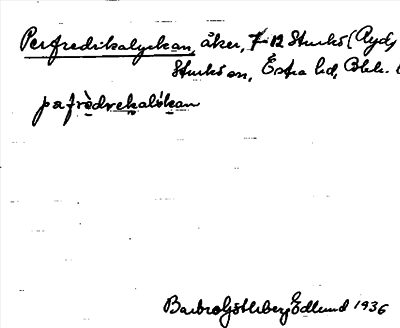 Perfredrikalyckan, åker, 7-12 Sturkö (Ryd,
Sturkö sn, Östra hd, Blek.
pafrèdrekalýkan
Barbro Göthberg Edlund 1936